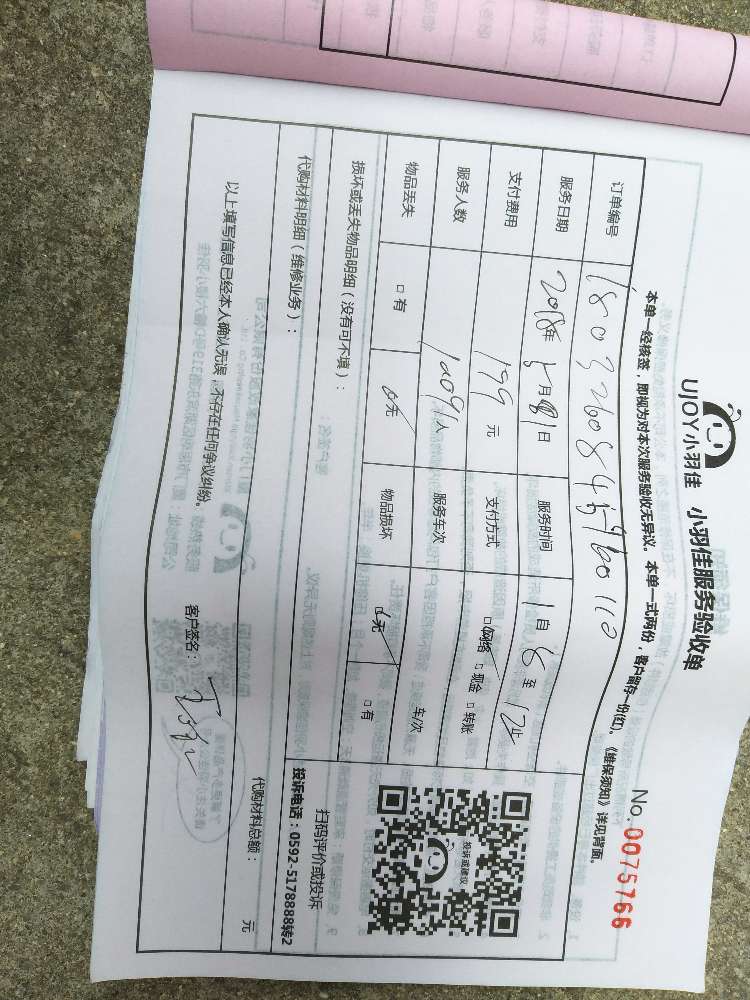 UJOY小羽佳 小羽佳服务验收单
No. 0075766
本单一经核签，即视为对本次服务验收无异议。本单一式两份，客户留存一份(红)。《维保须知》详见背面。
订单编号
服务日期 2018年 月 日 服务时间 自 8 至 12止
支付费用 199 元 支付方式 □网络 □现金 □转账
服务人数 人 服务车次 车/次
物品丢失 □有 □无 物品损坏 □无 □有
损坏或丢失物品明细（没有可不填）：
代购材料明细（维修业务）：
代购材料总额： 元
投诉或建议
扫码评价或投诉
投诉电话：0592-5178888转2
以上填写信息已经本人确认无误，不存在任何争议纠纷。
客户签名：